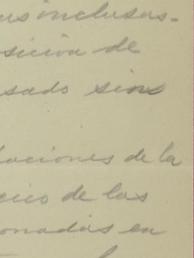 us inclusas.
sicion de
sado sino
laciones de la
cico de las
onadas en